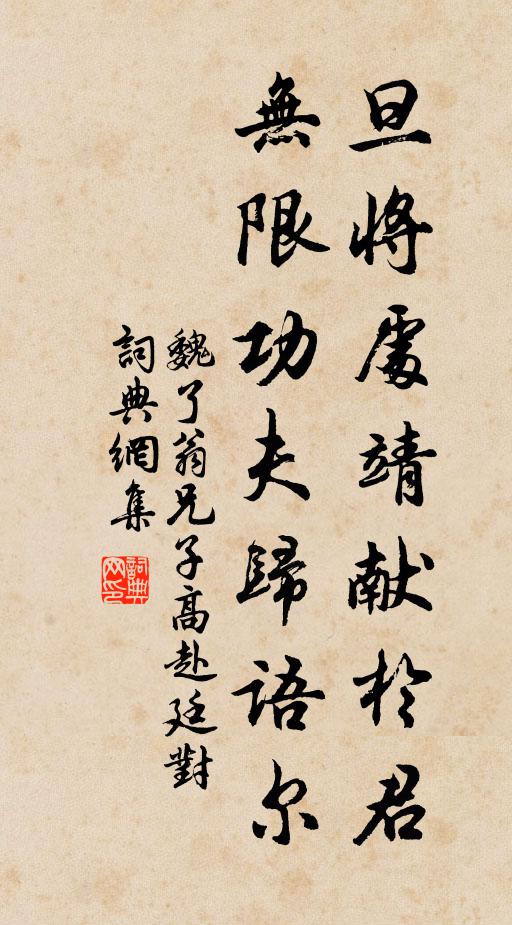 旦將處靖献於君
無限功夫歸語尔
魏了翁兄子高赴廷對
詞典網集
詞典網印